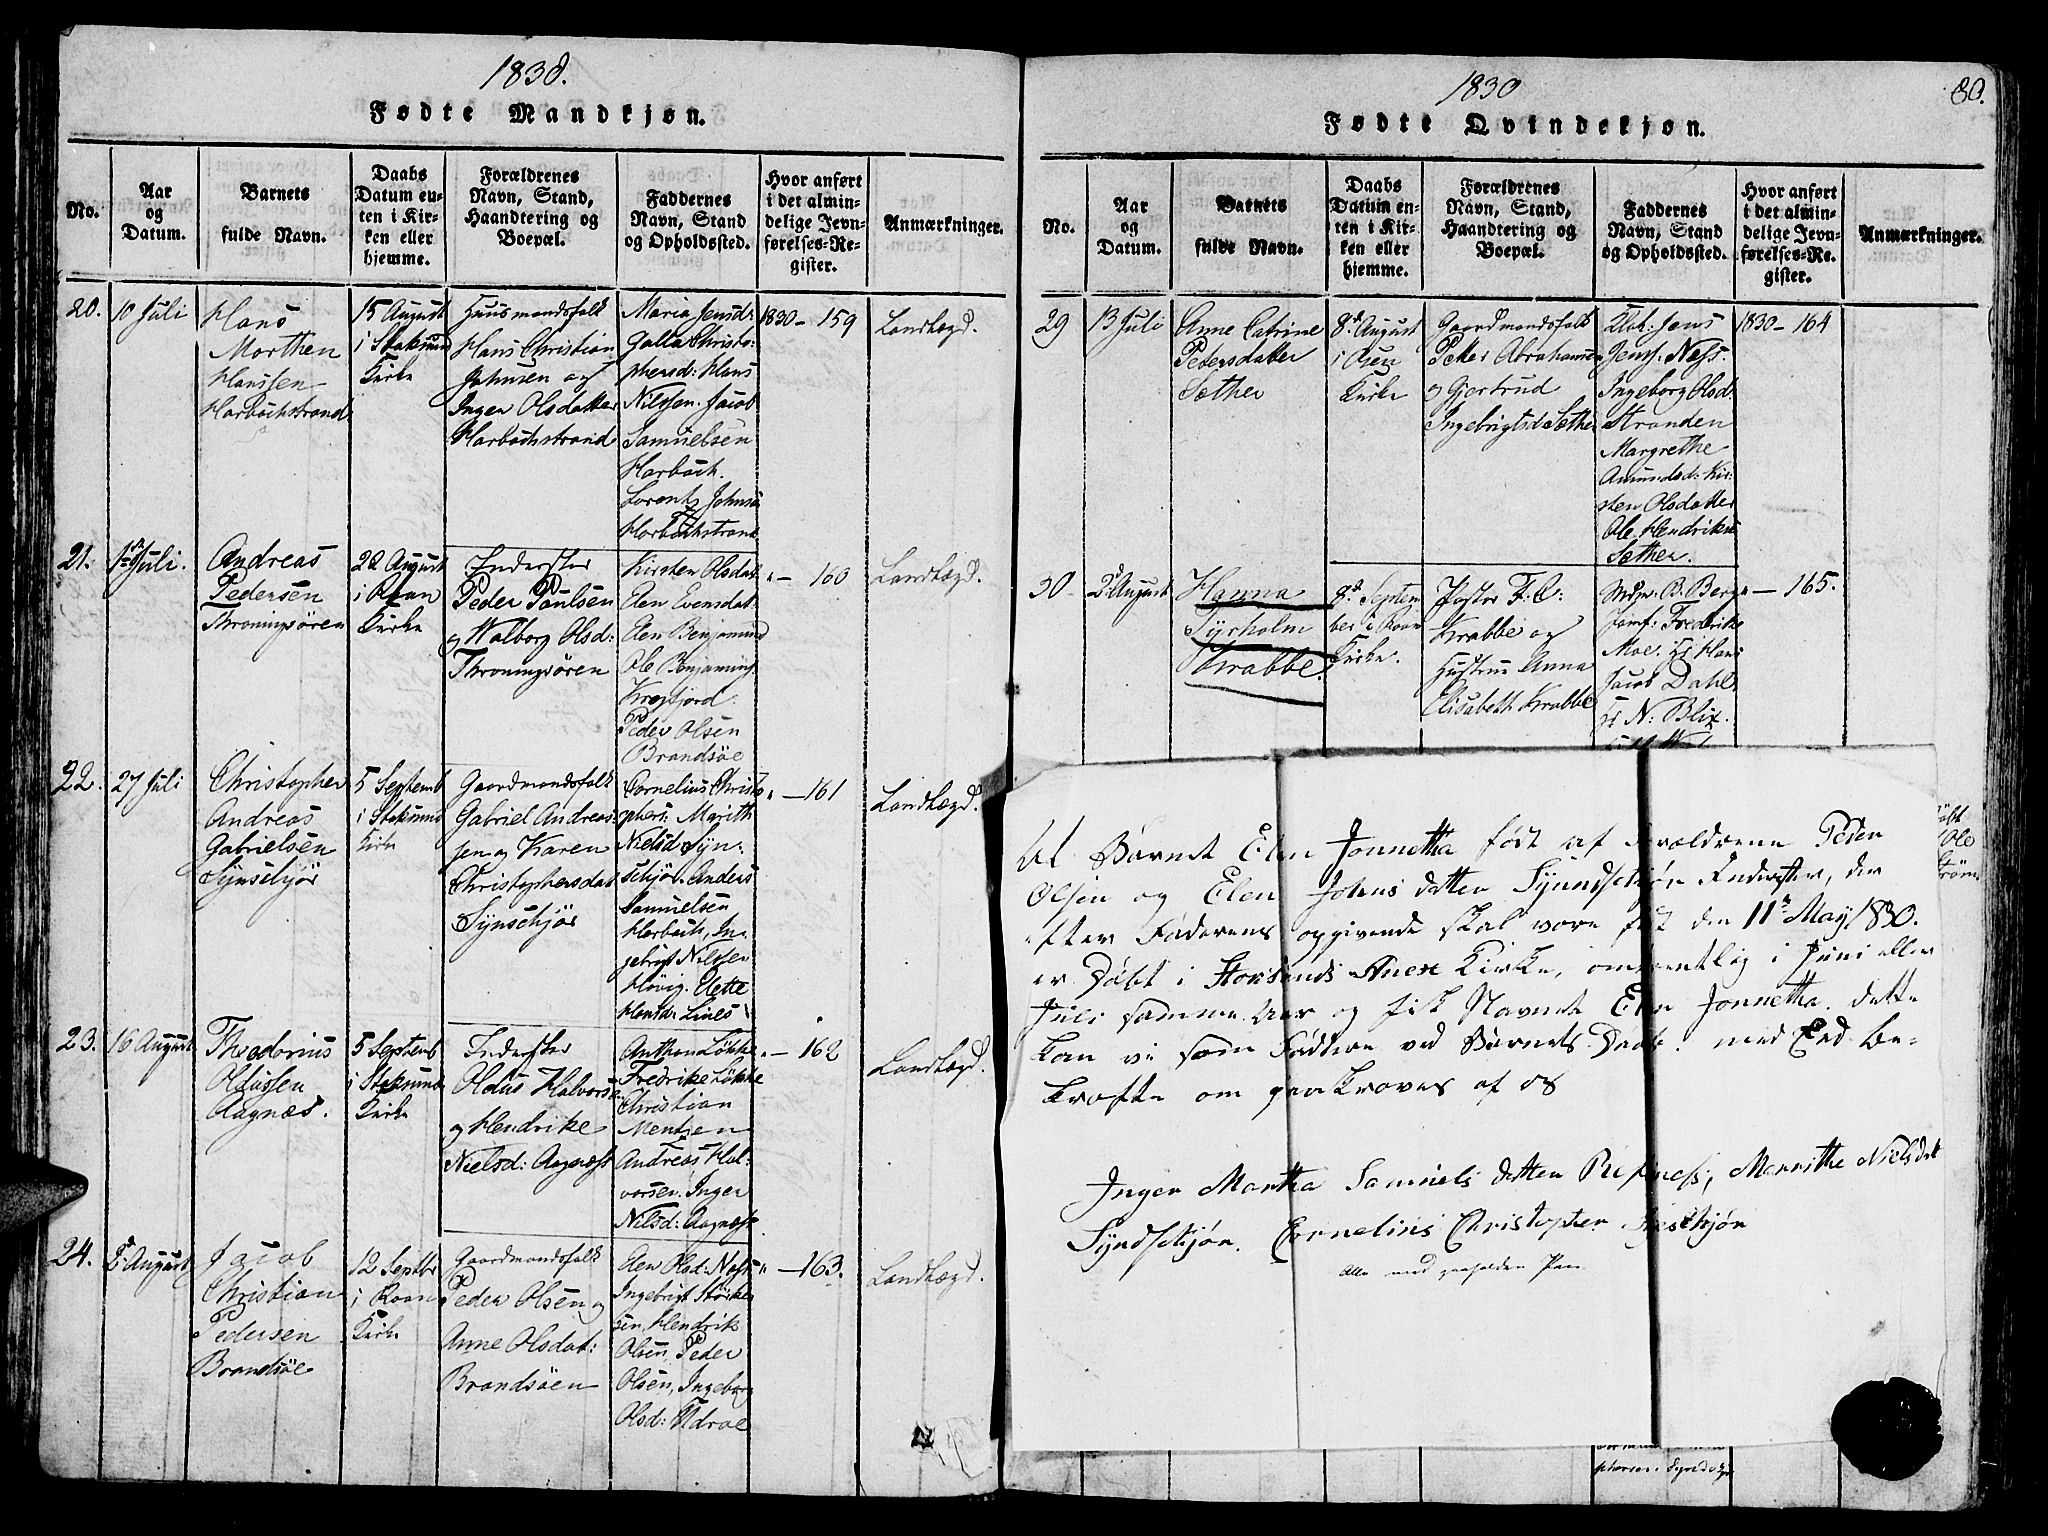 1830.
Fødte Mandkjøn.
No.
Aar
og
Datum.
Barnets
fulde Navn.
Daabs
Datum en-
ten i Kir-
ken eller
hjemme.
Forældrenes
Navn, Stand,
Haandtering og
Boepæl.
Faddernes
Navn, Stand
og Opholdssted.
Hvor anført
i det almin-
delige Jevn-
førelses-Re-
gister.
Anmærkninger.
20.
10 Juli
Hans
Morthen
Hanssen
Harbachstrand
15 August
i Stoksund
Kirke
Huusmandsfolk
Hans Christian
Johnsen og
Inger Olsdatter
Harbachstrand
Maria Jensd:
Galla Christo-
phersd: Hans
Nilssen. Jacob
Samuelsen
Harbach.
Lorentz Johnsen
Harbachstrand
1830 - 159
Landlægd.
21.
Juli.
Andreas
Pedersen
Throningsören
22 August
i Roan
Kirke
Inderster
Peder Poulsen
og Walborg Olsd:
Throningsören
Kirsten Olsdat.
Elen Evensdat.
Elen Benjamind
Ole Benjamins.
Krogfjord.
Peder Olsen
Brandsöe
" - 160
Landlægd.
22.
27 Juli
Christopher
Andreas
Gabrielsen
Synschjör
5 Septemb
i Stoksund
Kirke
Gaardmandsfolk
Gabriel Andreas-
sen og Karen
Christophersdat
Synschjör
Cornelius Christo-
phers: Marith
Nielsd Syn-
schjör. Anders
Samuelsen
Harbach, In-
gebrigt Nilssen
Høvig.
Hansd: Lines
" - 161
Landlægd.
23.
16 August
Theodorius
Oldussen
Aagnæs.
5 Septemb
i Stoksund
Kirke
Inderster
Oldus Halvors:
og Hendrike
Nielsd: Aagnæss
Anthon Løkke
Fredrike Løkke
Christian
Mentzen
Andreas Hal-
vorsen. Inger
Nilsd: Aagnæss.
" - 162
Landlægd.
24.
2d August
Jacob
Christian
Pedersen
Brandsöe
12 Septbr
i Roan
Kirke
Gaardmandsfolk
Peder Olsen og
Anne Olsdat:
Brandsöen
Elen Olsd: Næss
Ingebrigt Störker-
sen, Hendrik
Olsen, Peder
Olsen, Ingeborg
Olsd: Udroe
" - 163.
Landlægd.
1830
80.
Fødte Qvindekjøn.
No.
Aar
og
Datum.
Barnets
fulde Navn.
Daabs
Datum en-
ten i Kir-
ken eller
hjemme.
Forældrenes
Navn, Stand,
Haandtering og
Boepæl.
Faddernes
Navn, Stand
og Opholdssted.
Hvor anført
i det almin-
delige Jevn-
førelses-Re-
gister.
Anmærkninger.
29
13 Juli
Anne Catrine
Petersdatter
Sæther
8d August
i Osen
Kirke
Gaardmandsfolk
Petter Abrahamsen
og Gjertrud
Ingebrigtsd Sæther
Jens
Jens: Næss.
Ingeborg Olsd.
Stranden
Margrethe
Amundsd: Kir-
sten Olsdatter
Ole Hendriksen
Sæther.
1830 - 164
30
2d August
Hanna
Tyrholm
Krabbe.
8d Septem
ber i Roan
Kirke.
Pastor F: C:
Krabbe og
Hustrue Anna
Elisabeth Krabbe
Mdm: B. Berg
Jomf: Frederike
Moe. Hr Hans
Jacob Dahl.
Hr N: Blix.
" - 165.
At Barnet Elen Jonnetha født af Forældrene Peder
Olsen og Elen Johnsdatter Syndschjør Inderster, der
efter Faderens opgivende skal være født den 11te May 1830.
er Døbt i Stoksunds Anex Kirke, omtrentlig i Juni eller
Juli samme Aar og fik Navnet Elen Jonnetha. dette
kan vi som Fadere ved Barnets Daab. med Eed be-
kræfte om paakræves af os
Inger Martha Samuels datter Refsnes, Marrithe Nielsdat
Syndschjør. Cornelius Christophersen
Alle med paaholden Pen
phersen. Syndschjør